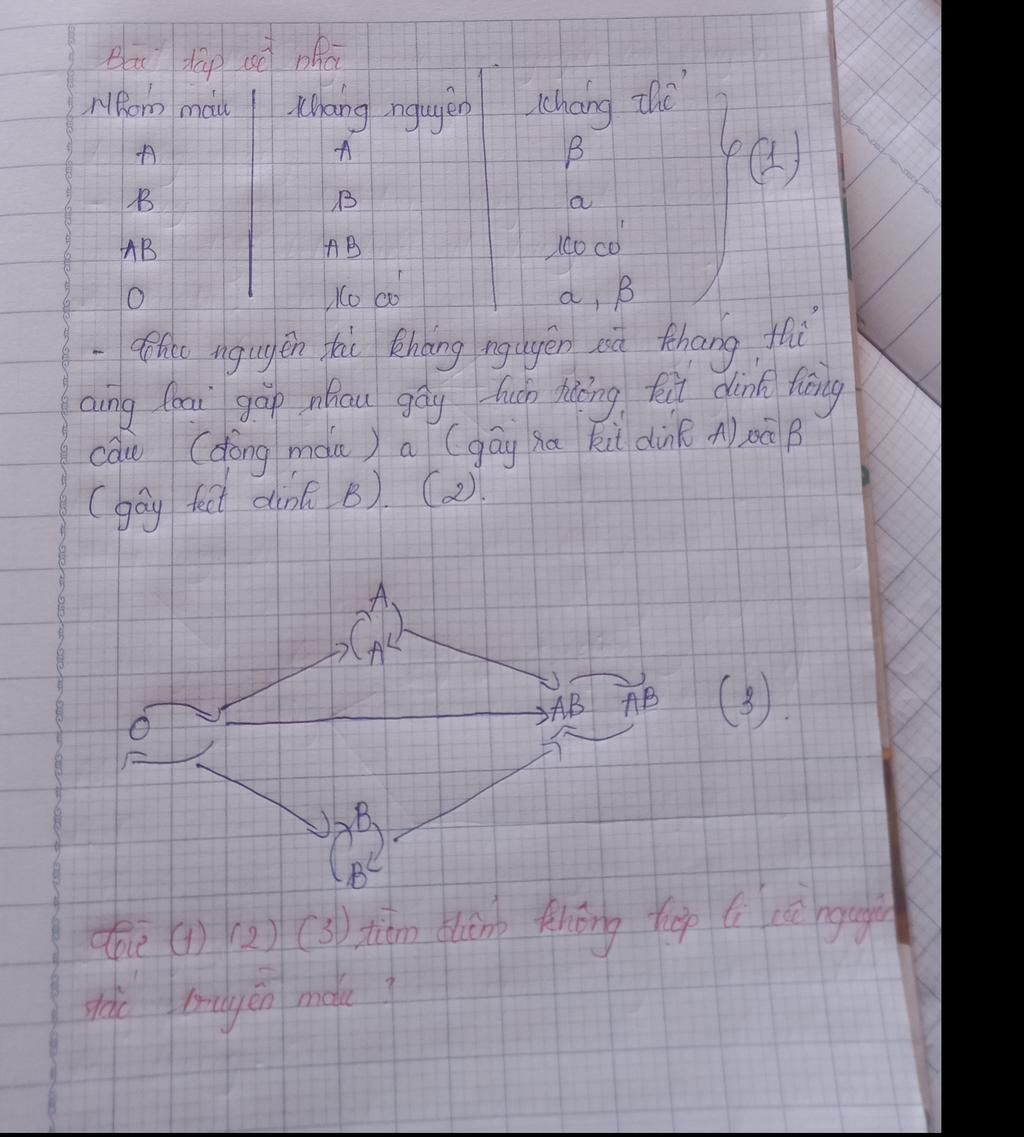 Bài tập về nhà
Nhóm máu | kháng nguyên | kháng thể
A A β
B B a
AB AB Ko có
O Ko có a, β
(1)
- Theo nguyên tắc kháng nguyên và kháng thể
cùng loại gặp nhau gây hiện tượng kết dính hồng
cầu (đông máu) a (gây ra kết dính A) và β
(gây kết dính B). (2).
A
A
O AB AB (3).
B
B
Từ (1) (2) (3) tìm điểm không hợp lí về nguyên
tắc truyền máu ?